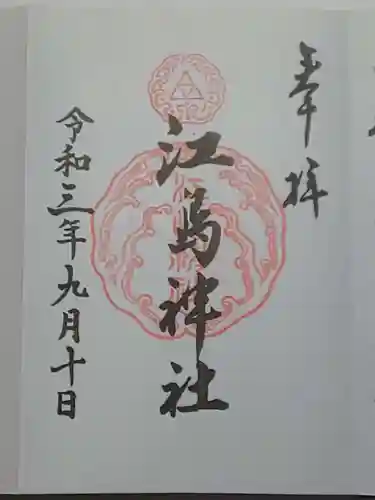 奉拝
江島神社
令和三年九月十日